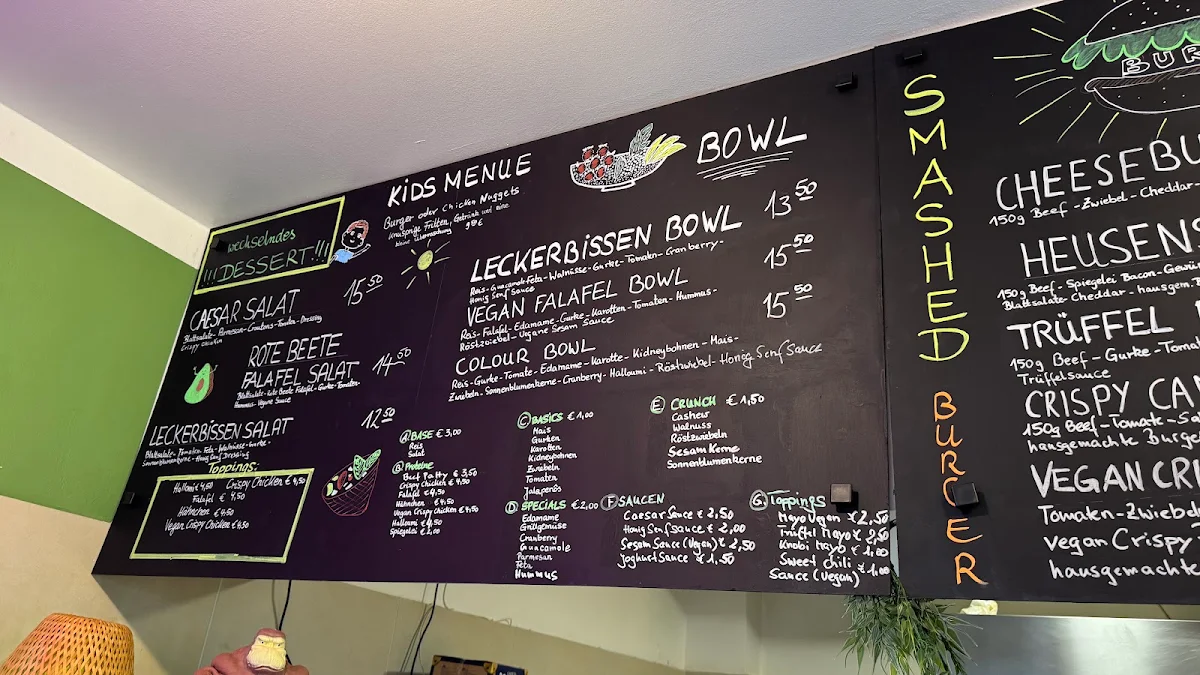 wechselndes
!!!DESSERT!!!
CAESAR SALAT 15⁵⁰
Blattsalate - Parmesan - Croutons - Tomaten - Dressing
ROTE BEETE
FALAFEL SALAT 14⁵⁰
Blattsalate - Rote Beete Falafel - Gurke - Tomaten-
Hummus - Vegane Sauce
LECKERBISSEN SALAT 12⁵⁰
Blattsalate - Tomaten Feta - Walnüsse - Gurke -
Sonnenblumenkerne - Honig Senf Dressing
Toppings:
Halloumi € 4,50 Crispy Chicken € 4,50
Falafel € 4,50
Hähnchen € 4,50
Vegan Crispy Chicken € 4,50
KiDS MENUE
Burger oder Chicken Nuggets
knusprige Fritten, Getränk und eine
kleine Überraschung
BOWL
LECKERBISSEN BOWL 13⁵⁰
Reis - Guacamole - Feta - Walnüsse - Gurke - Tomaten - Cranberry -
Honig Senf Sauce
VEGAN FALAFEL BOWL 15⁵⁰
Reis - Falafel - Edamame - Gurke - Karotten - Tomaten - Hummus -
Röstzwiebel - Vegane Sesam Sauce
COLOUR BOWL 15⁵⁰
Reis - Gurke - Tomate - Edamame - Karotte - Kidneybohnen - Mais -
Zwiebeln - Sonnenblumenkerne - Cranberry - Halloumi - Röstzwiebel - Honig Senf Sauce
Ⓐ BASE € 3,00
Reis
Salat
Ⓑ Proteine
Beef Patty € 3,50
Crispy Chicken € 4,50
Falafel € 4,50
Hähnchen € 4,50
Vegan Crispy Chicken € 4,50
Halloumi € 4,50
Spiegelei € 2,00
Ⓒ BASICS € 1,00
Mais
Gurken
Karotten
Kidneybohnen
Zwiebeln
Tomaten
Jalapeños
Ⓓ SPECIALS € 2,00
Edamame
Grillgemüse
Cranberry
Guacamole
Parmesan
Feta
Hummus
Ⓔ CRUNCH € 1,50
Cashew
Walnuss
Röstzwiebeln
Sesam Kerne
Sonnenblumenkerne
Ⓕ SAUCEN
Caesar Sauce € 2,50
Honig Senf sauce € 2,00
Sesam Sauce (Vegan) € 2,50
Joghurt Sauce € 1,50
Ⓖ Toppings
Mayo Vegan € 2,50
Trüffel Mayo € 2,50
Knobi Mayo € 1,00
Sweet Chili € 1,00
Sauce (Vegan)
SMASHED BURGER
BUR
CHEESEBU
150g Beef - Zwiebel - Cheddar -
HEUSENS
150g Beef - Spiegelei Bacon - Gewür
Blattsalate - Cheddar - hausgem.
TRÜFFEL
150g Beef - Gurke - Toma
Trüffelsauce
CRISPY CA
150g Beef - Tomate - Sa
hausgemachte Burge
VEGAN CRI
Tomaten - Zwiebel
vegan Crispy
hausgemachte